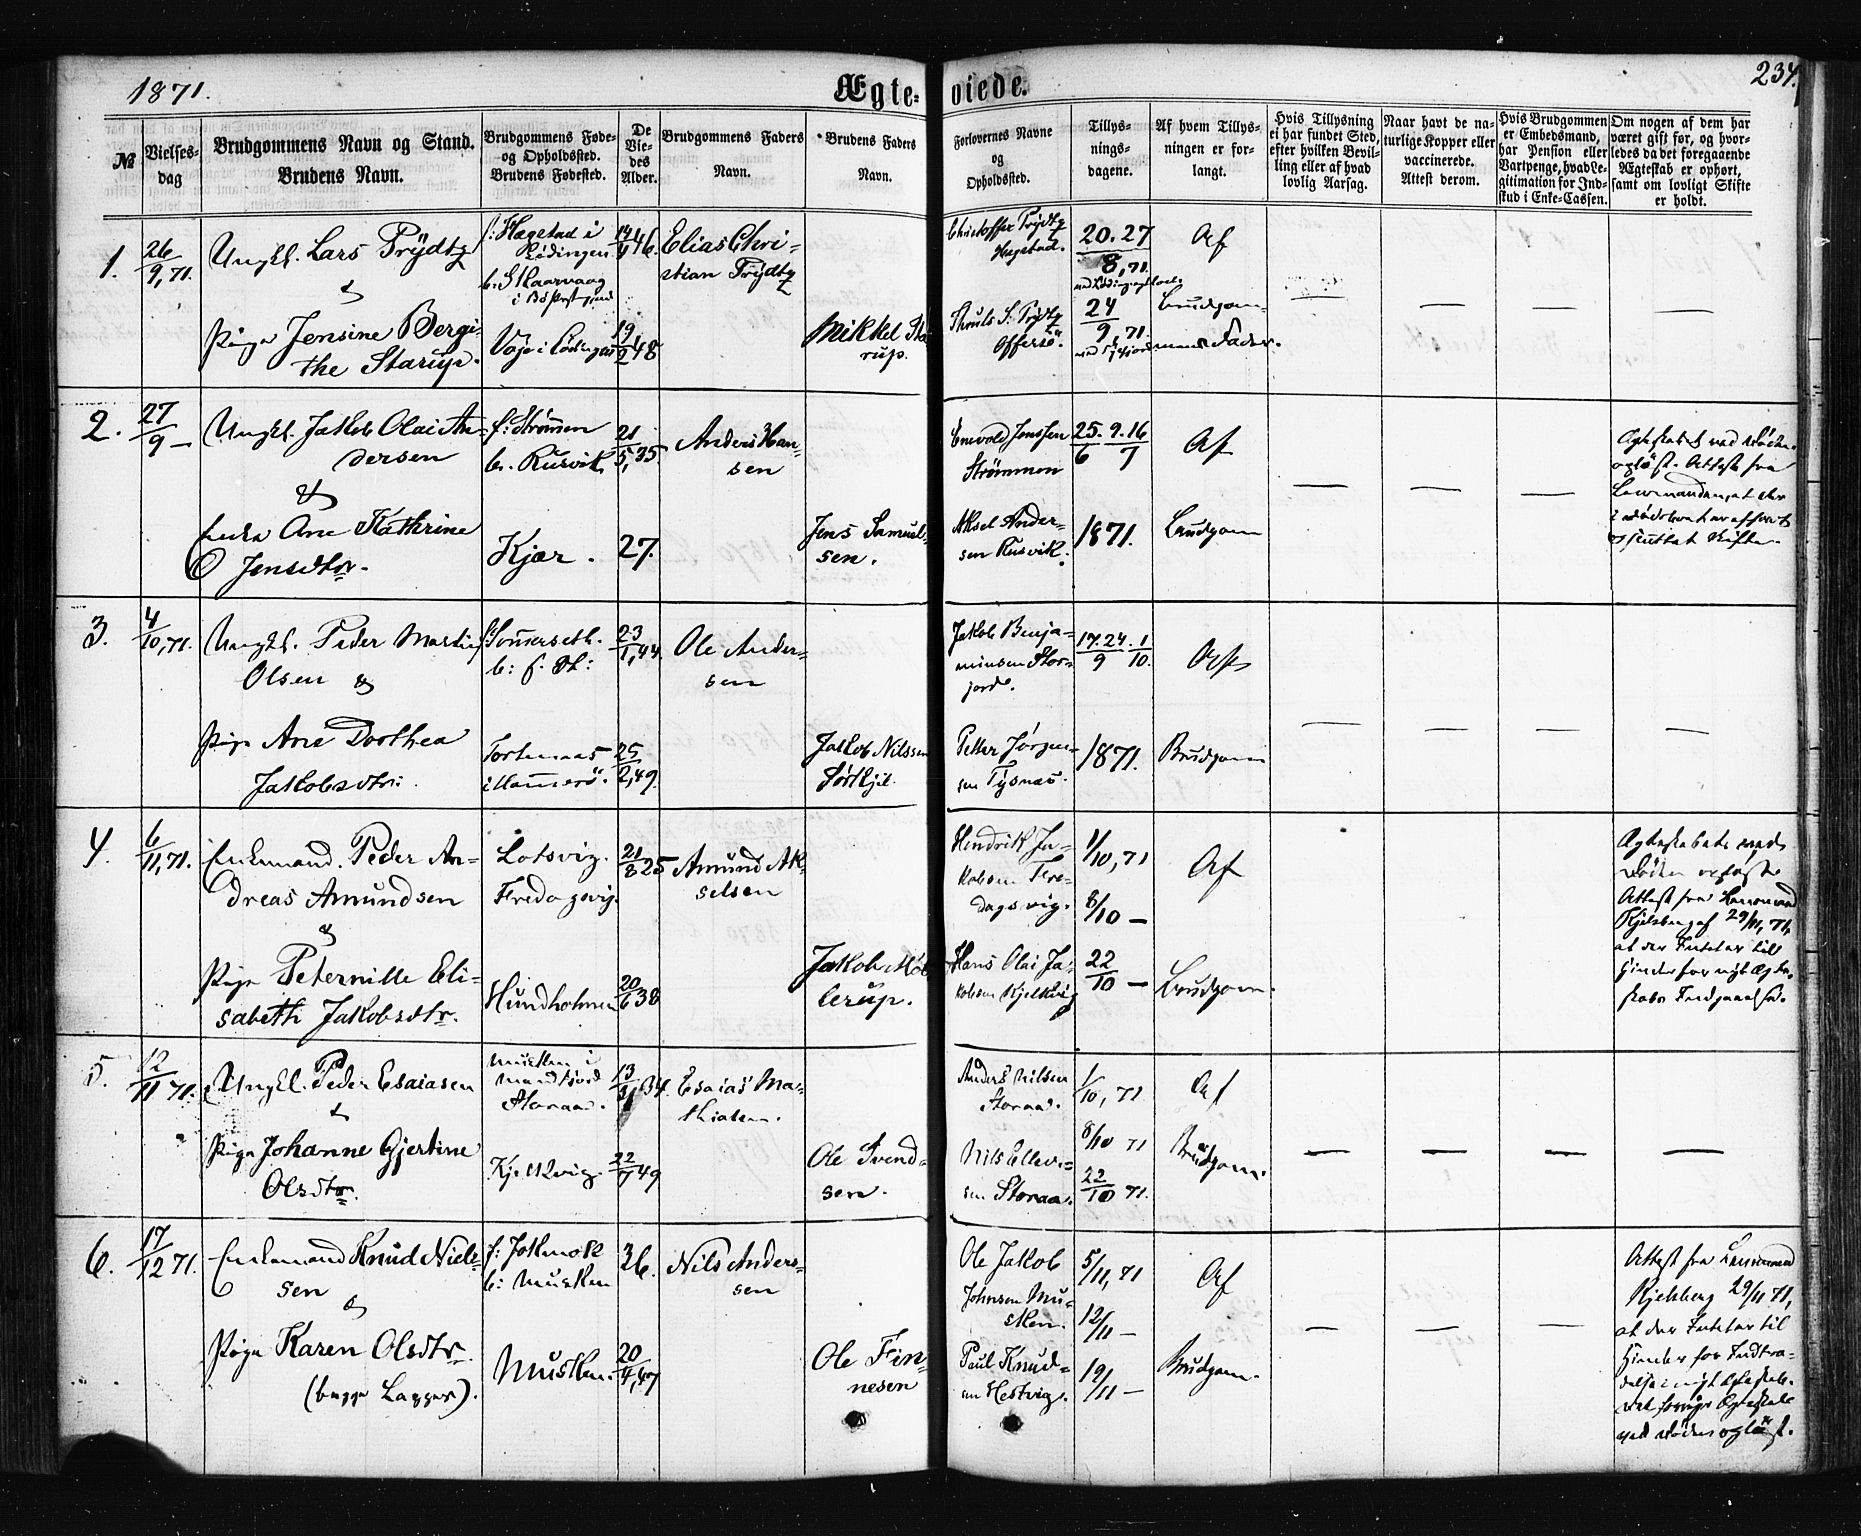 1871.
Ægte-
viede.
234.
№
Vielses-
dag
Brudgommens Navn og Stand.
Brudens Navn.
Brudgommens Føde-
og Opholdssted.
Brudens Fødested.
De
Vie-
des
Alder.
Brudgommens Faders
Navn.
Brudens Faders
Navn.
Forlovernes Navne
og
Opholdssted.
Tillys-
nings-
dagene.
Af hvem Tillys-
ningen er for-
langt.
Hvis Tillysning
ei har fundet Sted,
efter hvilken Bevil-
ling eller af hvad
lovlig Aarsag.
Naar havt de na-
turlige Kopper eller
vaccinerede.
Attest derom.
Hvis Brudgommen
er Embedsmand,
har Pension eller
Vartpenge, hvad Le-
gitimation for Ind-
skud i Enke-Cassen.
Om nogen af dem har
været gift før, og hvor-
ledes da det foregaaende
Ægteskab er ophørt,
samt om lovligt Skifte
er holdt.
1.
26
9, 71.
Ungkl. Lars Trydtz
&
Pige Jensine Bergi-
the Starup.
f: Hægstad i
Lødingen
Vaje i Lødingen
14
46.
19
2 48
Elias Chri-
stian Trydtz
Mikkel Sta-
rup.
Christoffer Trydtz
Hægstad.
Trydtz
Offersø.
20. 27
8, 71.
24
9, 71.
Af
Brudgom-
mens Fader.
2.
27
9 —
Ungkl. Jakob Olai An-
dersen
&
Enke Ane Kathrine
Jensdtr.
f: Strømen
b. Rusvik
Kjær.
21
5, 35.
27.
Anders Han-
sen
Jens Samuel-
sen.
Enevold Jenssen
Strømmen
Aksel Ander-
sen Rusvik.
25. 9. 16
6 7
1871.
Af
Brudgom
3.
4
10, 71.
Ungkl. Peder Martin
Olsen &
Pige Ane Dorthea
Jakobsdtr.
f: Somerseth.
b: f. St:
i Hamerø.
23
1, 44.
25
2, 49.
Ole Ander-
sen
Jakob Nilssen
Jakob Benja-
minsen Stor-
jord.
Petter Jørgen-
sen Tysnæs.
17. 24. 1
9 10.
1871.
Af
Brudgom
4.
6
11, 71.
Enkemand. Peder An-
dreas Amundsen
&
Pige Peternille Eli-
sabeth Jakobsdtr.
Lotsvig.
Fredagsvig.
Hundholmen
21
8 25
20
6 38
Amund Ak-
selsen
Jakob Møl-
lerup.
Hendrik Ja-
kobsen Fre-
dagsvig.
Hans Olai Ja-
kobsen Kjelkvig
1/10, 71
8/10 —
22
10 —
Af
Brudgom.
Attest fra Lensmand
Kjelsberg af 29/11, 71,
at der Intet er til
Hinder for nyt Ægte-
skabs Indgaaelse.
5.
12
11 71.
Ungkl. Peder Esaiasen
&
Pige Johanne Gjertine
Olsdtr.
Musken i
Storaa.
Kjelkvig.
13
34.
22
49
Esaias Ma-
thiasen.
Ole Svend-
sen.
Anders Nilsen
Storaa.
Nils Elle-
sen Storaa.
1/10, 71
8/10 71
22
10 71.
Af
Brudgom.
6.
17
12 71.
Enkemand Knud Niels-
sen
&
Pige Karen Olsdtr.
(begge Lapper).
f: Jokmok
b: Musken
Musken.
36.
20
4, 47
Nils Anders-
sen
Ole Fin-
nesen
Ole Jakob
Johnsen Mu-
sken.
Paul Knud-
sen Hestvig.
5/11, 71
12/11 —
19/11 —
Af
Brudgom.
Attest fra Lensmand
Kjelsberg 29/11 71,
at der Intet er til
Hinder for Indtræ-
delse i nyt Ægteskab.
Det forrige Ægteskab
ved Døden opløst.